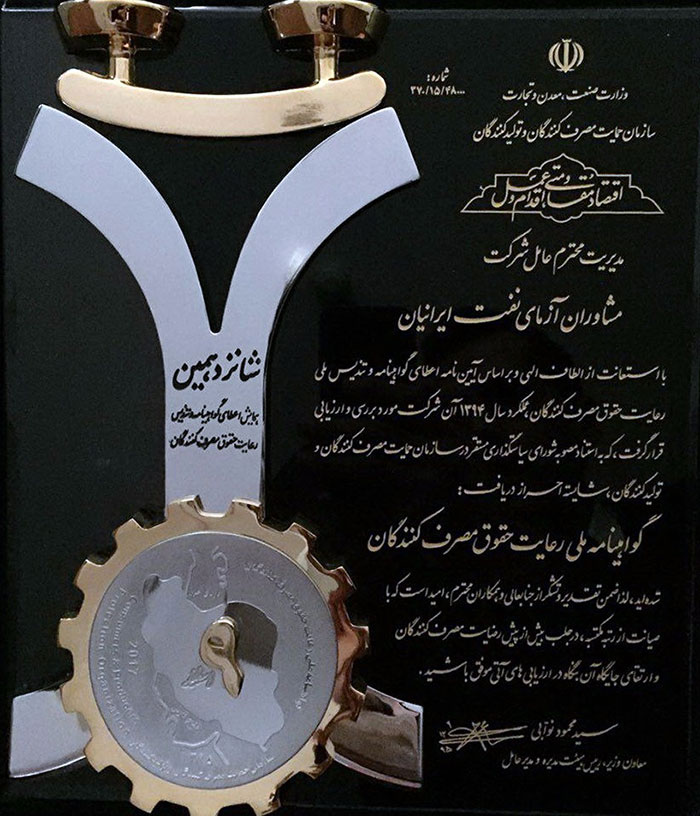 شماره:
۳۷۰/۱۵/۴۸۰۰۰
وزارت صنعت، معدن و تجارت
سازمان حمایت مصرف کنندگان و تولید کنندگان
اقتصاد مقاومتی اقدام و عمل
مدیریت محترم عامل شرکت
مشاوران آزمای نفت ایرانیان
با استعانت از الطاف الهی و بر اساس آیین نامه اعطای گواهینامه و تندیس ملی
رعایت حقوق مصرف کنندگان عملکرد سال ۱۳۹۴ آن شرکت مورد بررسی و ارزیابی
قرار گرفت، که به استناد مصوبه شورای سیاستگذاری مستقر در سازمان حمایت مصرف کنندگان و
تولید کنندگان، شایسته احراز دریافت:
گواهینامه ملی رعایت حقوق مصرف کنندگان
شده اید، لذا ضمن تقدیر و تشکر از جنابعالی و همکاران محترم، امید است که با
صیانت از رتبه مکتسبه، در جلب بیش از پیش رضایت مصرف کنندگان
و ارتقای جایگاه آن بنگاه در ارزیابی های آتی موفق باشید.
سید محمود نوابی
معاون وزیر، رییس هیئت مدیره و مدیر عامل
شانزدهمین
همایش اعطای گواهینامه و تندیس
رعایت حقوق مصرف کنندگان
2017